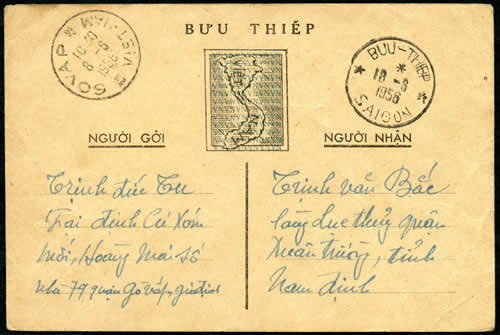 BƯU THIẾP
GOVAP
VIET-NAM
10 30
8-8
1956
VIỆT
NAM
BUU-THIẾP
18-8
1956
SAIGON
NGƯỜI GỞI
NGƯỜI NHẬN
Trịnh đức Tu
Trại định Cư Xóm
mới, Hoàng Mai số
nhà 79 quận Gò Vấp, gia định
Trịnh văn Bắc
làng dục thủy quận
xuân trường, tỉnh
Nam định